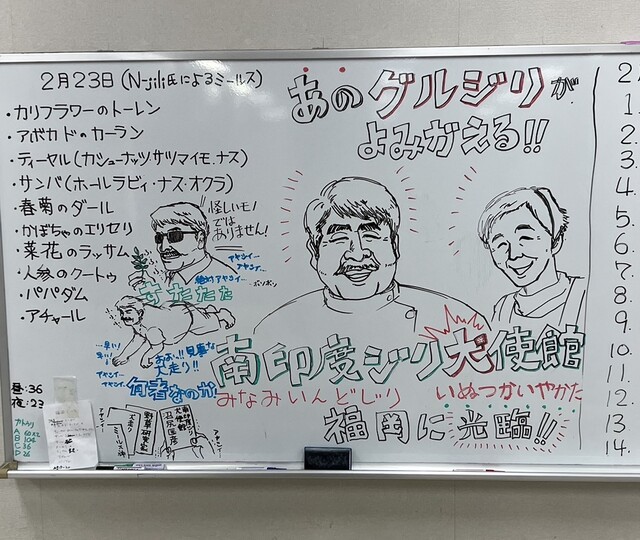 2月23日(N-jili氏によるミールス)
・カリフラワーのトーレン
・アボカドのカーラン
・ティーヤル(カシューナッツ,サツマイモ,ナス)
・サンバ(ホールラビィ・ナス・オクラ)
・春菊のダール
・かぼちゃのエリセリ
・菜花のラッサム
・人参のクートゥ
・パパダム
・アチャール
あのグルジリが
よみがえる!!
怪しいモノ
ではありません!
アヤシイー
アヤシイ…
絶対アヤシイ…
ボソボソ
すたたた
…早い!
早い!
おお…!!見事な
犬走り!!
アヤシイー
アヤシイ…
何者なのか
南印度ジリ犬使館
みなみいんどじり
いぬつかいやかた
福岡に光臨!!
昼:36
夜:23
カトリ
A 60
B 106
C 36
D 26
アヤシイー
犬走り
野草研究家
ミールス
南印度ジリ
犬使館
アヤシイー
2
1
2.
3.
4.
5.
6.
7.
8.
9.
10.
11.
12.
13.
14.